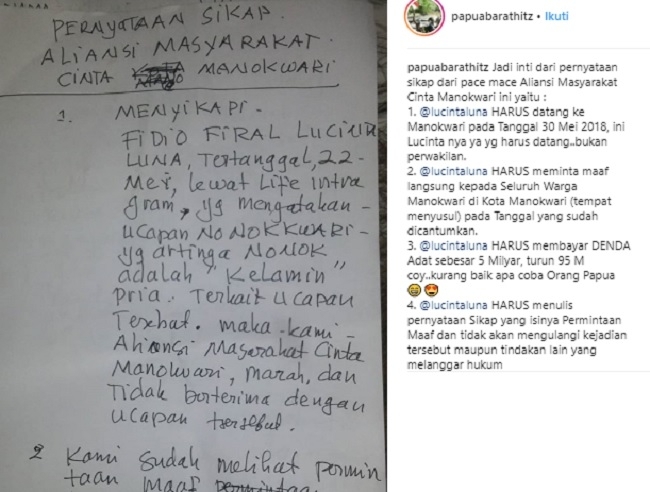 PERNYATAAN SIKAP.
ALIANSI MASYARAKAT.
CINTA MANOKWARI
1. MENYIKAPI.
FIDIO FIRAL LUCINDA
LUNA, Tertanggal, 22-
Mei, lewat Life intra
gram, yg mengatakan -
ucapan NO NOKKWARI -
yg artinga NONOK
adalah "Kelamin"
pria. Terkait ucapan
Tersebat. maka kami -
Aliansi Masarakat Cinta
Manokwari, marah, dan
Tidak borterima dengan
ucapan tersebut.
2 Kami sudah melihat permin
taan maaf
papuabarathitz • Ikuti
papuabarathitz Jadi inti dari pernyataan
sikap dari pace mace Aliansi Masyarakat
Cinta Manokwari ini yaitu :
1. @lucintaluna HARUS datang ke
Manokwari pada Tanggal 30 Mei 2018, ini
Lucinta nya ya yg harus datang..bukan
perwakilan.
2. @lucintaluna HARUS meminta maaf
langsung kepada Seluruh Warga
Manokwari di Kota Manokwari (tempat
menyusul) pada Tanggal yang sudah
dicantumkan.
3. @lucintaluna HARUS membayar DENDA
Adat sebesar 5 Milyar, turun 95 M
coy..kurang baik apa coba Orang Papua
😄😍
4. @lucintaluna HARUS menulis
pernyataan Sikap yang isinya Permintaan
Maaf dan tidak akan mengulangi kejadian
tersebut maupun tindakan lain yang
melanggar hukum